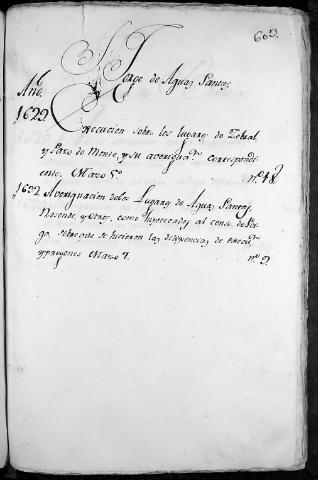 603.
S. Jorge de Aguas Santas.
Año
1622
Execucion sobre los lugares de Zebral
y Pazo de Monte, y su averigua.on correspondi
ente. Mazo 5.o n.o 18.
1632 Averiguacion de los Lugares de Aguas Santas,
Resende, y otros, como hipotecados al censo de
go. sobre que se hicieron las diligencias de execu.on
y pregones Mazo 7. n.o 9.